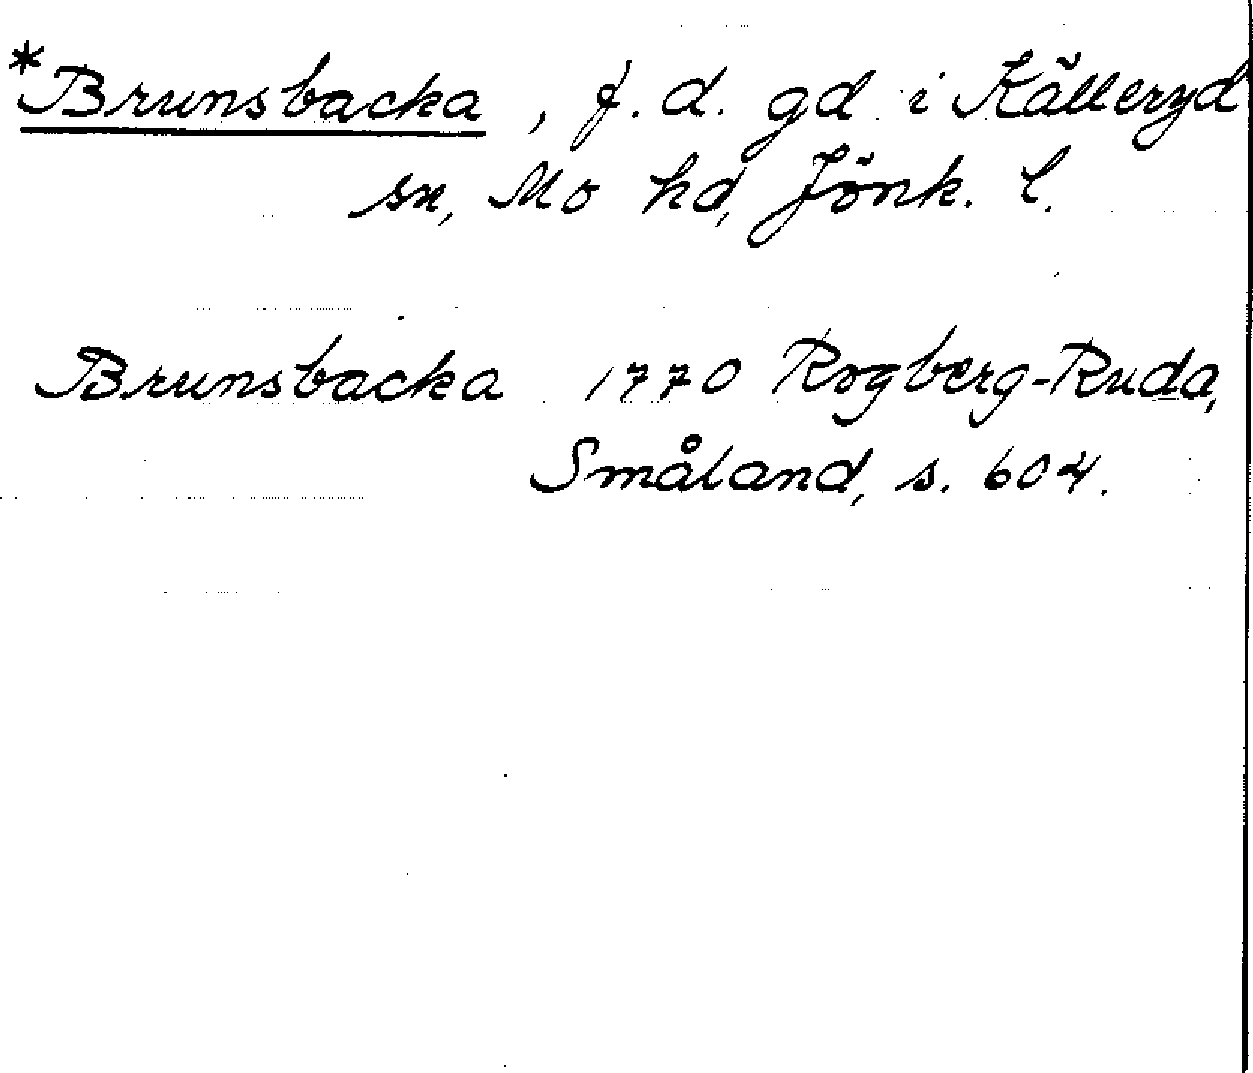 *Brunsbacka, f. d. gd i Källeryd
sn, Mo hd, Jönk. l.
Brunsbacka 1770 Rogberg-Ruda,
Småland, s. 604.